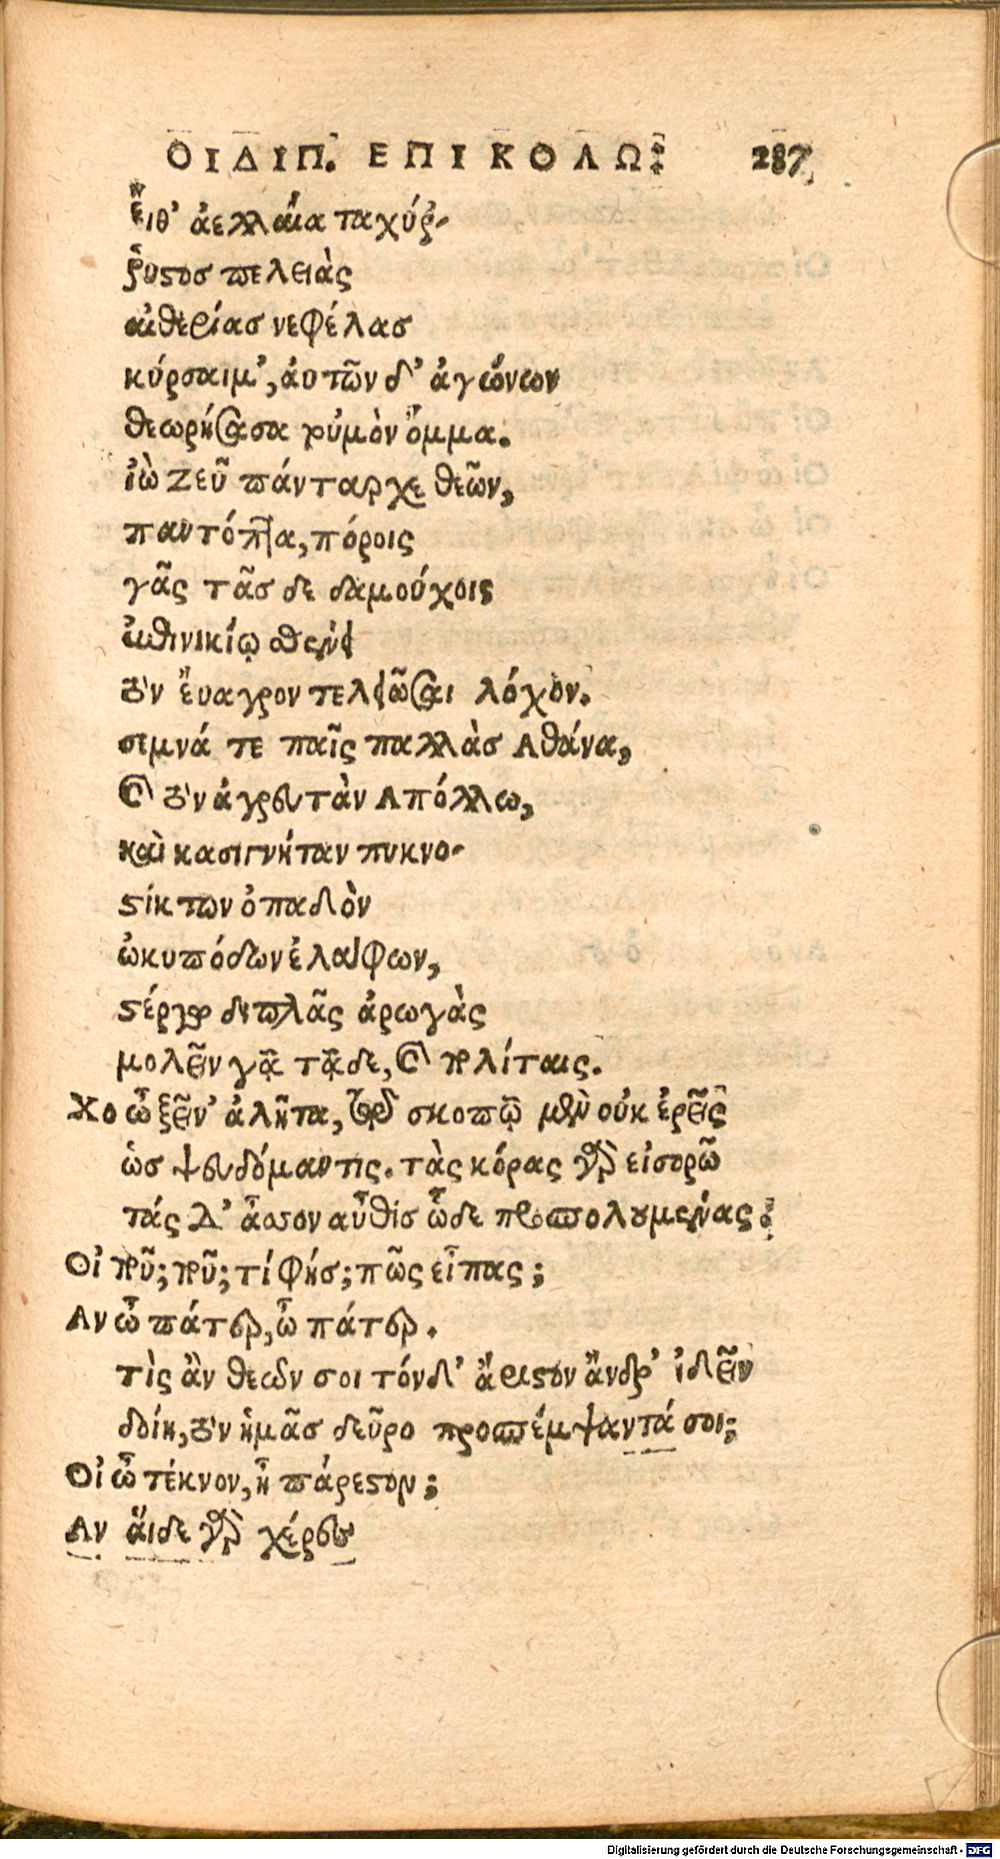 ΟΙΔΙΠ. ΕΠΙ ΚΟΛΩ: 287
εἴθ' ἀελλαία ταχύρ-
ῥωστος πελειὰς
αἰθερίας νεφέλας
κύρσαιμ', αὐτῶν δ' ἀγώνων
θεωρήσασα τοὐμὸν ὄμμα.
ἰὼ Ζεῦ πάνταρχε θεῶν,
παντόπτα, πόροις
γᾶς τᾶσδε δαμούχοις
ἐπινικίῳ σθένει
τὸν εὔαγρον τελειῶσαι λόχον.
σεμνά τε παῖς παλλὰς Ἀθάνα,
καὶ τὸν ἀγρευτὰν Ἀπόλλω,
καὶ κασιγνήταν πυκνο-
στίκτων ὀπαδὸν
ὠκυπόδων ἐλάφων,
στέργω διπλᾶς ἀρωγὰς
μολεῖν γᾷ τᾷδε, καὶ πολίταις.
Χο ὦ ξεῖν' ἀλῆτα, τῷ σκοπῷ μὲν οὐκ ἐρεῖς
ὡς ψευδόμαντις. τὰς κόρας γὰρ εἰσορῶ
τάς δ' ἆσσον αὖθις ὧδε προσπολουμένας:
Οἰ ποῦ; ποῦ; τί φής; πῶς εἶπας;
Αν ὦ πάτερ, ὦ πάτερ.
τὶς ἂν θεῶν σοι τόνδ' ἄριστον ἄνδρ' ἰδεῖν
δοίη, τὸν ἡμᾶς δεῦρο προσπέμψαντά σοι;
Οἰ ὦ τέκνον, ἦ πάρεστον;
Αν αἵδε γὰρ χέρες